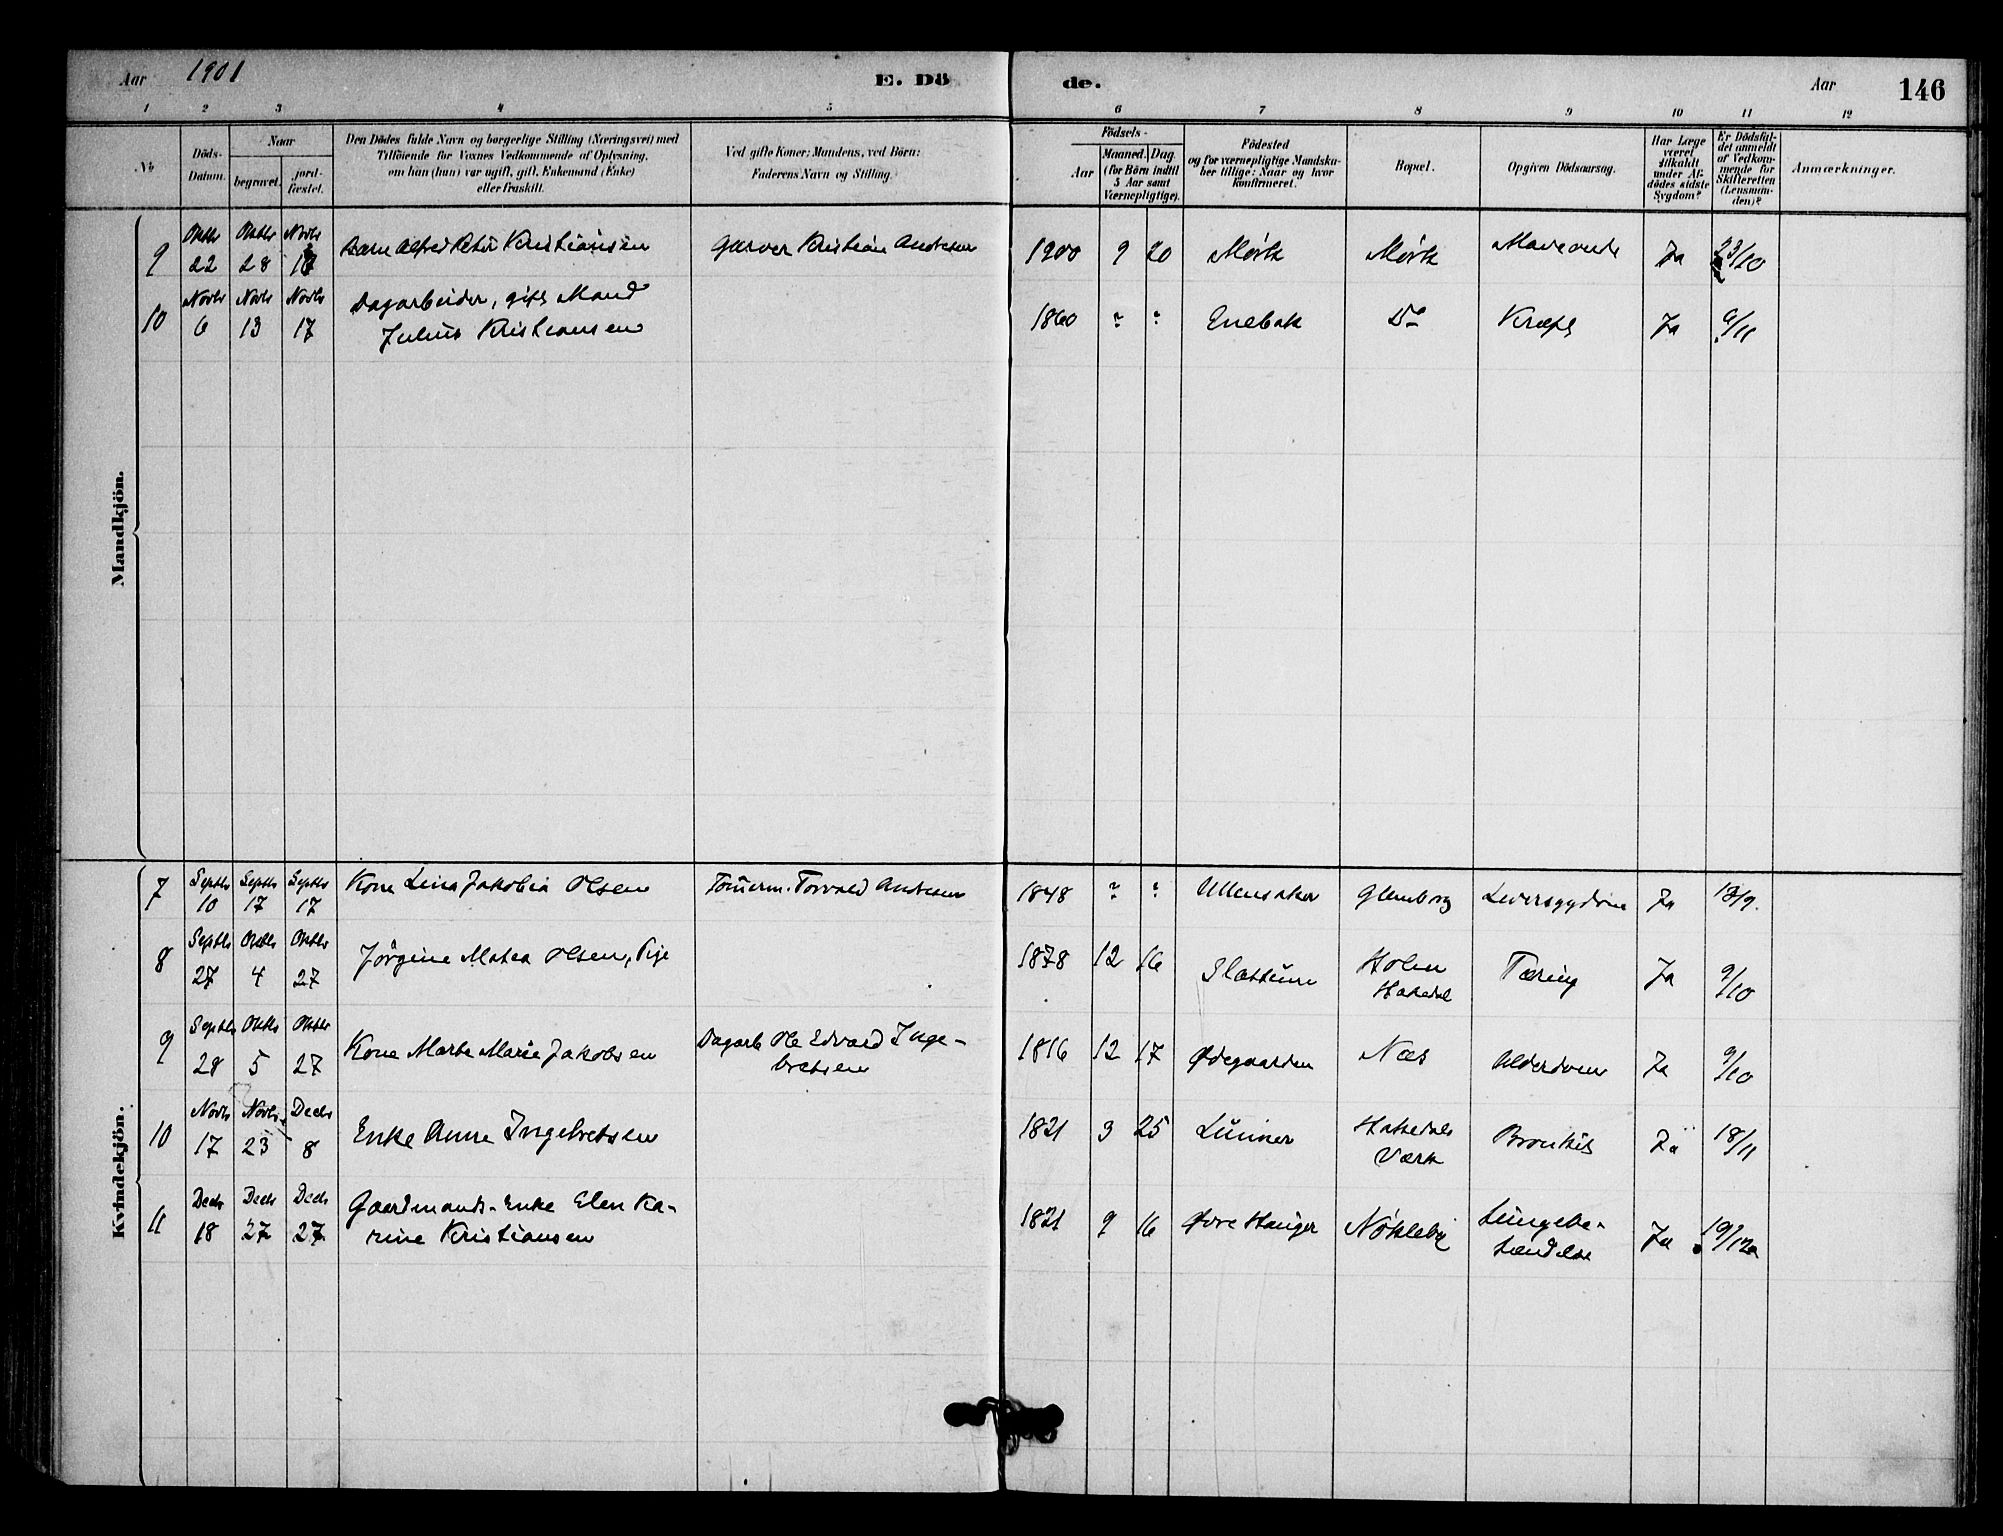 Aar 1901 E. Dö de. Aar 146
1 2 3 4 5 6 7 8 9 10 11 12
No. Döds-Datum. Naar begravet. jord-fæstet. Den Dödes fulde Navn og borgerlige Stilling (Næringsvei) med Tilföiende for Voxnes Vedkommende af Oplysning, om han (hun) var ugift, gift, Enkemand (Enke) eller fraskilt. Ved gifte Koner: Mandens, ved Börn: Faderens Navn og Stilling. Födsels- Aar Maaned. Dag. (for Börn indtil 5 Aar samt Værnepligtige). Födested og for værnepligtige Mandskaber tillige: Naar og hvor konfirmeret. Bopæl. Opgiven Dödsaarsag. Har Læge været tilkaldt under Afdödes sidste Sygdom? Er Dödsfaldet anmeldt af Vedkommende for Skifteretten (Lensmanden)? Anmærkninger.
Mandkjön.
9 Oktbr 22 Oktbr 28 Novbr Barn Alfred Peter Kristiansen Garver Kristian Andresen 1900 9 20 Mörk Mörk Maveonde Ja 23/10
10 Novbr 6 Novbr 13 Novbr 17 Dagarbeider, gift Mand
Julius Kristiansen 1860 ? ? Enebak Do Kræft Ja 9/11
Kvindekjön.
7 Septbr 10 Septbr 17 Septbr 17 Kone Lina Jakobia Olsen Tömerm. Torvald Andresen 1848 ? ? Ullensaker Glemborg Leversygdom Ja 13/9.
8 Septbr 27 Oktbr 4 Oktbr 27 Jörgine Matea Olsen, Pige 1878 12 16 Slattum Holm
Hakedal Tæring Ja 9/10
9 Septbr 28 Oktbr 5 Oktbr 27 Kone Marte Marie Jakobsen Dagarb Ole Edvard Inge-
bretsen 1816 12 17 Ødegaarden Næs Alderdom Ja 9/10
10 Novbr 17 Novbr 23 Decbr 8 Enke Anne Ingebretsen 1821 3 25 Lunner Hakedals
Værk Bronkit Ja 18/11
11 Decbr 18 Decbr 27 Decbr 27 Gaardmands-Enke Elen Ka-
rine Kristiansen 1821 9 16 Øvre Hauger Nökleby Lungebe-
tændelse Ja 19/12